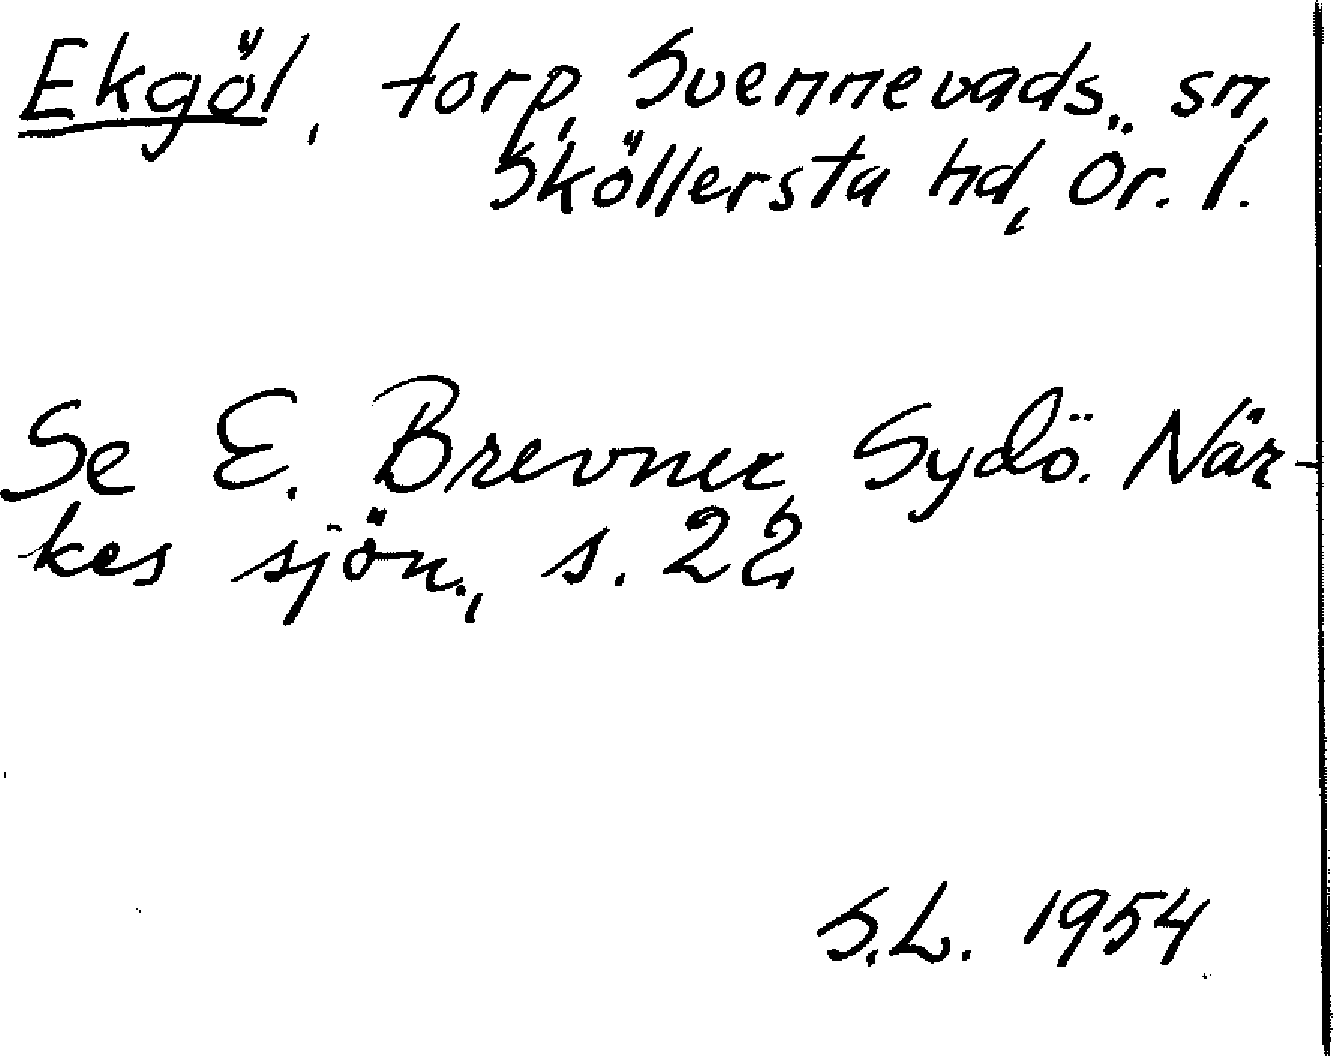 Ekgöl, torp, Svennevads sn,
Sköllersta hd, Ör. l.
Se E. Brevner, Sydö. När-
kes sjön., s. 22
S.L. 1954